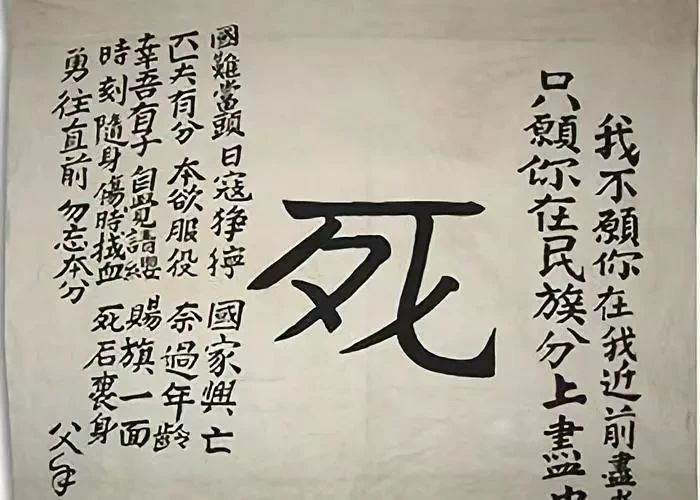 我不願你在我近前盡
只願你在民族分上盡
死
國難當頭 日寇猙獰 國家興亡
匹夫有分 本欲服役 奈過年齡
幸吾有子 自覺請纓 賜旗一面
時刻隨身 傷時拭血 死后裹身
勇往直前 勿忘本分
父字